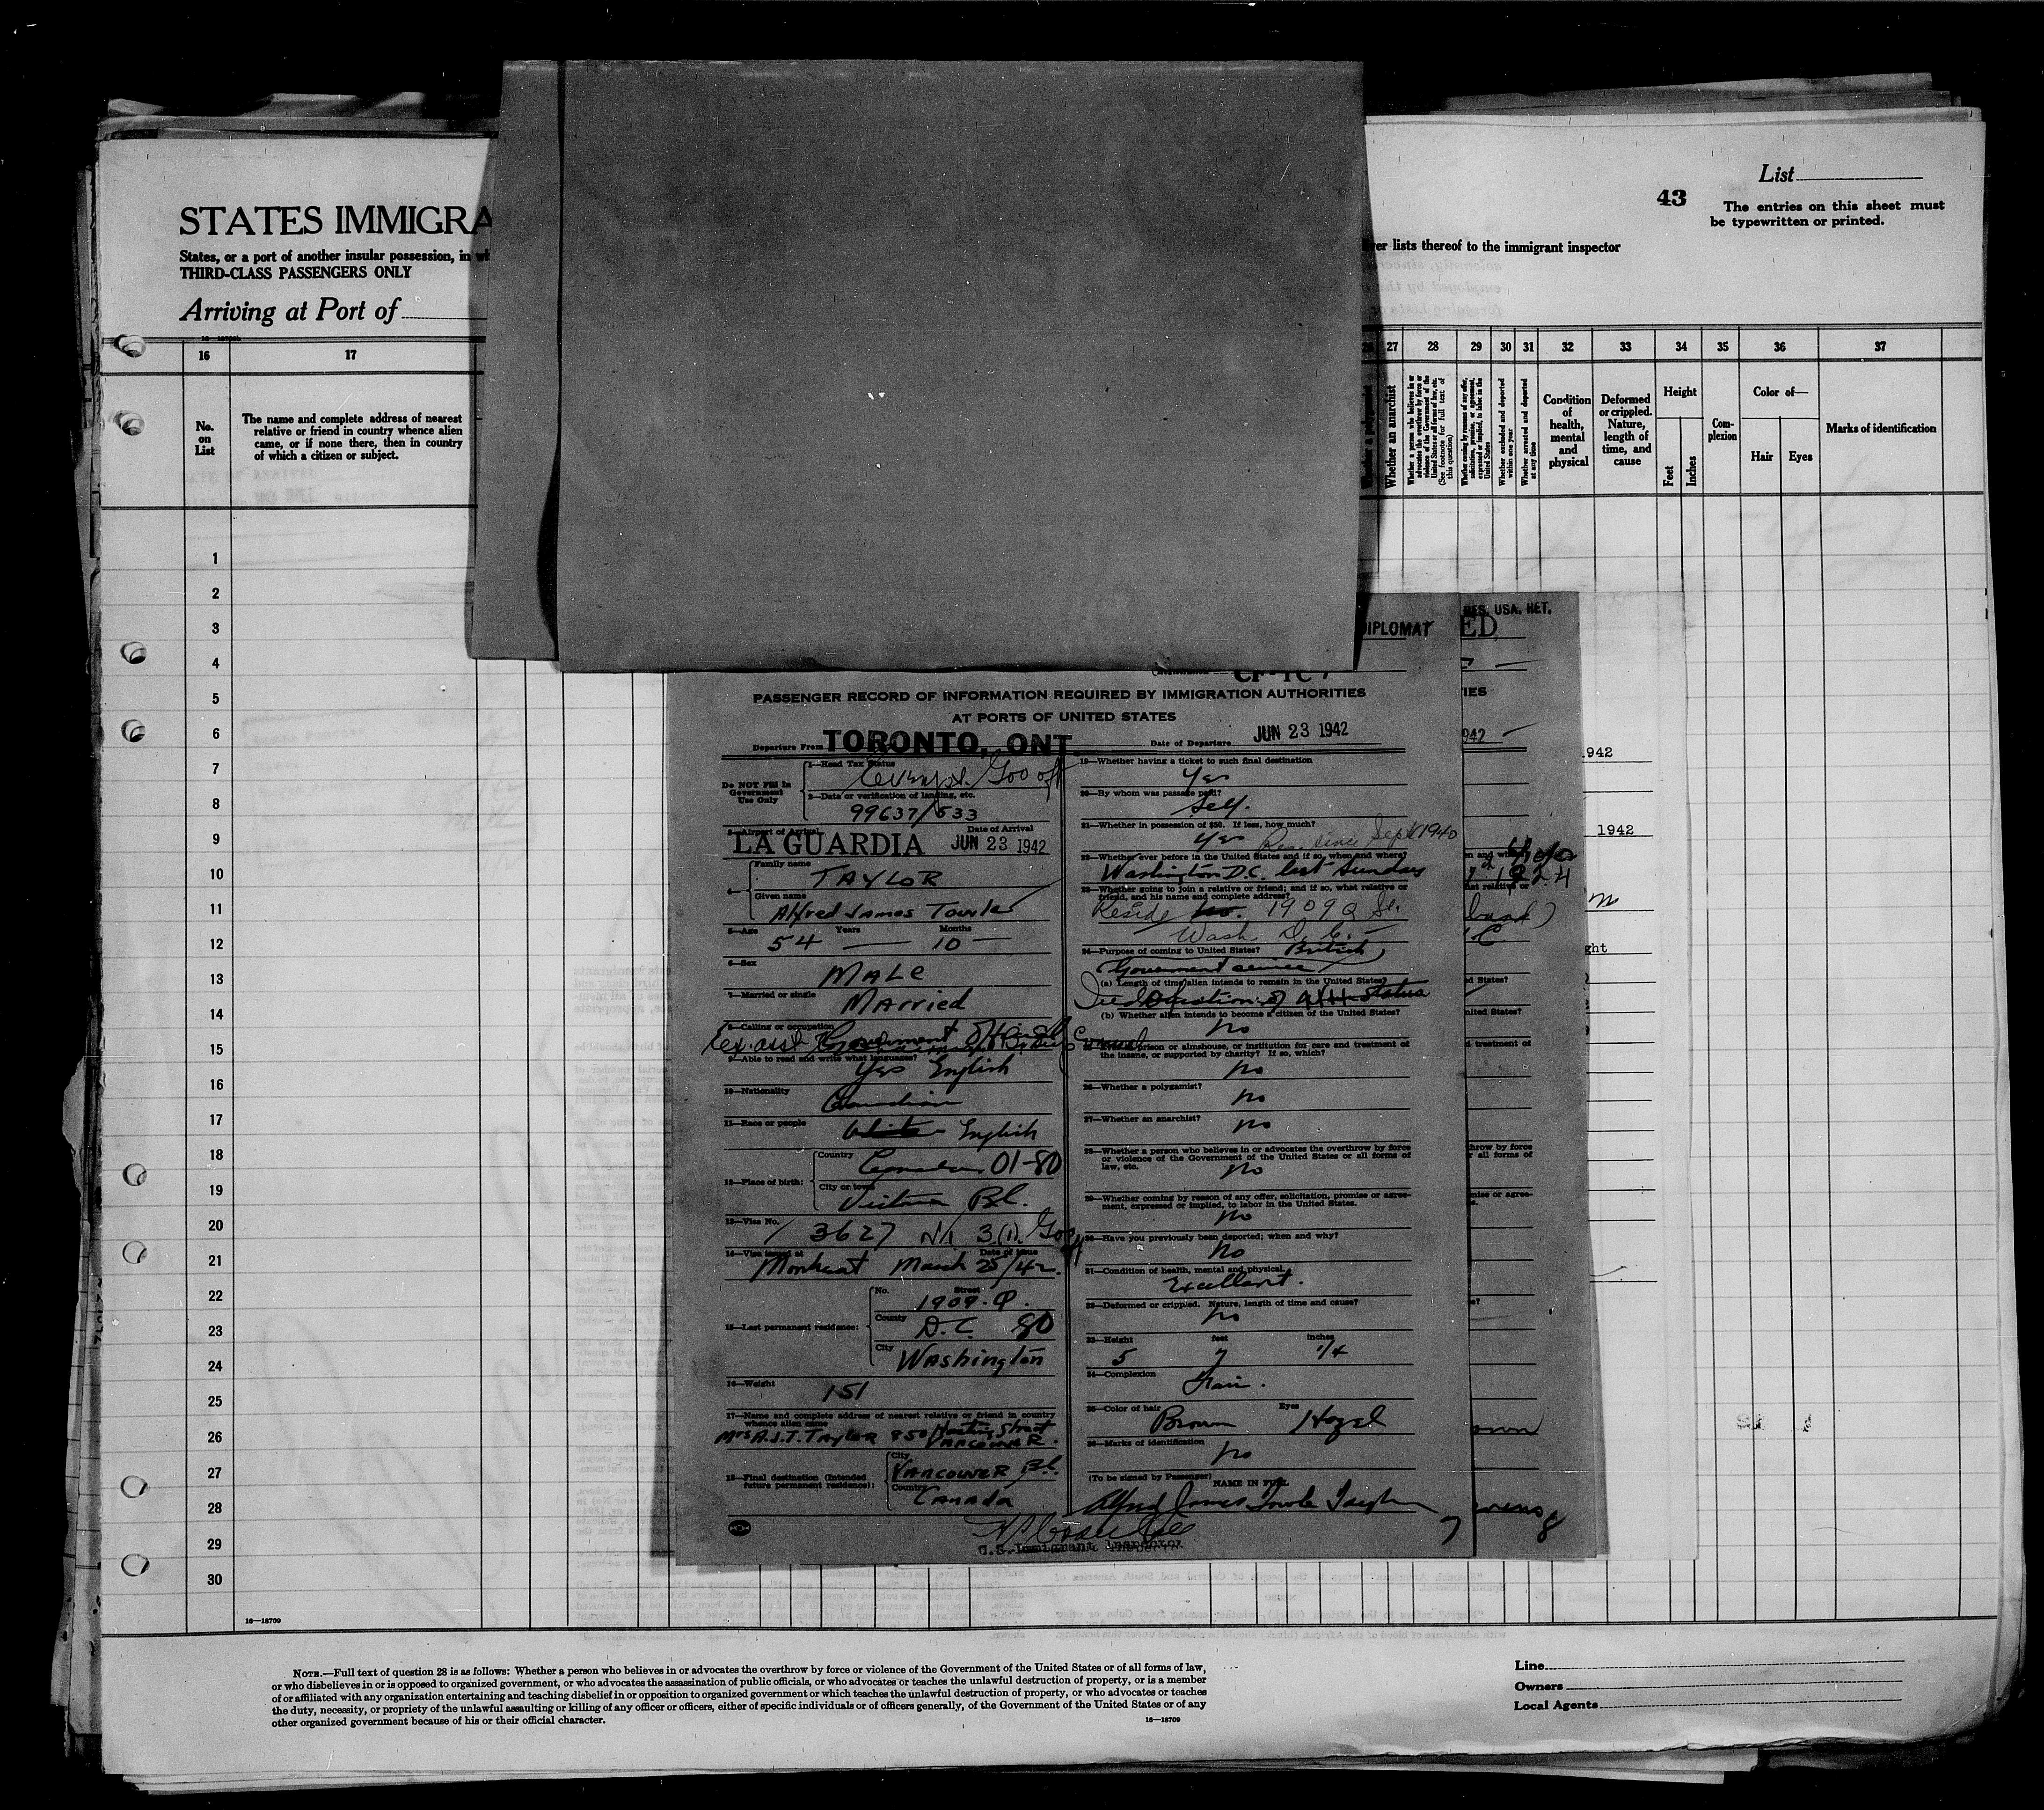 List
43
The entries on this sheet must
be typewritten or printed.
STATES IMMIGRA
States, or a port of another insular possession, in wh
THIRD-CLASS PASSENGERS ONLY
er lists thereof to the immigrant inspector
Arriving at Port of
16
17
27
28
29
30
31
32
33
34
35
36
37
No.
on
List
The name and complete address of nearest
relative or friend in country whence alien
came, or if none there, then in country
of which a citizen or subject.
Whether an anarchist
Whether a person who believes in or
advocates the overthrow by force or
violence of the Government of the
United States or all forms of law, etc.
(See footnote for full text of
this question)
Whether coming by reason of any offer,
solicitation, promise, or agreement,
expressed or implied, to labor in the
United States
Whether excluded and deported
within one year
Whether arrested and deported
at any time
Condition
of
health,
mental
and
physical
Deformed
or crippled.
Nature,
length of
time, and
cause
Height
Feet
Inches
Com-
plexion
Color of—
Hair
Eyes
Marks of identification
1
2
3
4
5
6
7
8
9
10
11
12
13
14
15
16
17
18
19
20
21
22
23
24
25
26
27
28
29
30
16—18709
RES. USA. RET.
DIPLOMAT
ED
PASSENGER RECORD OF INFORMATION REQUIRED BY IMMIGRATION AUTHORITIES
AT PORTS OF UNITED STATES
Departure From TORONTO, ONT.
Date of Departure JUN 23 1942
Do NOT Fill In
Government
Use Only
1—Head Tax Status
Gov off
2—Data or verification of landing, etc.
99637/533
3—Airport of Arrival
Date of Arrival
LA GUARDIA JUN 23 1942
4—
Family name
TAYLOR
Given name
Alfred James Towle
5—Age Years Months
54 — 10 —
6—Sex
MALE
7—Married or single
Married
8—Calling or occupation
Government
9—Able to read and write what languages?
Yes English
10—Nationality
Canadian
11—Race or people
White English
12—Place of birth:
Country
Canada 01-80
City or town
Victoria B.C.
13—Visa No.
3627 3(1). Gov
14—Visa issued at Date of Issue
Montreal March 25/42
15—Last permanent residence:
No. Street
1909 - Q.
County
D.C. 80
City
Washington
16—Weight
151
17—Name and complete address of nearest relative or friend in country
whence alien came
Mrs A.J.T. TAYLOR 850 Hastings Street
VANCOUVER.
18—Final destination (Intended
future permanent residence):
City
VANCOUVER B.C.
Country
CANADA
19—Whether having a ticket to such final destination
Yes
20—By whom was passage paid?
Self.
21—Whether in possession of $50. If less, how much?
Yes Res since Sept 1940
22—Whether ever before in the United States and if so, when and where?
Washington D.C. last Sunday
23—Whether going to join a relative or friend; and if so, what relative or
friend, and his name and complete address?
Reside no. 1909 Q St.
Wash D.C.
24—Purpose of coming to United States? British
Government service
(a) Length of time alien intends to remain in the United States?
Duration of status
(b) Whether alien intends to become a citizen of the United States?
no
prison or almshouse, or institution for care and treatment of
the insane, or supported by charity? If so, which?
no
26—Whether a polygamist?
no
27—Whether an anarchist?
no
28—Whether a person who believes in or advocates the overthrow by force
or violence of the Government of the United States or all forms of
law, etc.
no
29—Whether coming by reason of any offer, solicitation, promise or agree-
ment, expressed or implied, to labor in the United States.
no
30—Have you previously been deported; when and why?
no
31—Condition of health, mental and physical.
Excellent.
32—Deformed or crippled. Nature, length of time and cause?
no
33—Height feet inches
5 7 1/4
34—Complexion
Fair.
35—Color of hair Eyes
Brown Hazel
36—Marks of identification
no
(To be signed by Passenger)
NAME IN FULL
Alfred James Towle Taylor
7
8
U.S. Immigrant Inspector
942
1942
NOTE.—Full text of question 28 is as follows: Whether a person who believes in or advocates the overthrow by force or violence of the Government of the United States or of all forms of law,
or who disbelieves in or is opposed to organized government, or who advocates the assassination of public officials, or who advocates or teaches the unlawful destruction of property, or is a member
of or affiliated with any organization entertaining and teaching disbelief in or opposition to organized government or which teaches the unlawful destruction of property, or who advocates or teaches
the duty, necessity, or propriety of the unlawful assaulting or killing of any officer or officers, either of specific individuals or of officers generally, of the Government of the United States or of any
other organized government because of his or their official character.
16—18709
Line
Owners
Local Agents